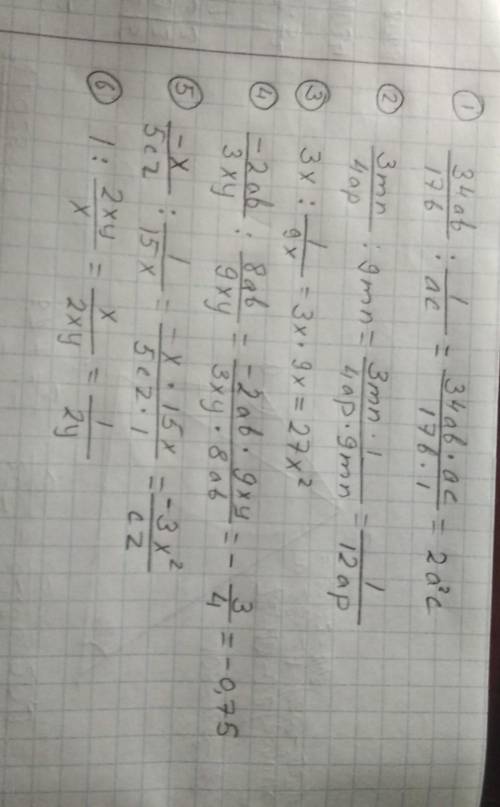 ① 34ab/17b : 1/ac = 34ab·ac/17b·1 = 2a²c
② 3mn/4ap : 9mn = 3mn·1/4ap·9mn = 1/12ap
③ 3x : 1/9x = 3x·9x = 27x²
④ -2ab/3xy : 8ab/9xy = -2ab·9xy/3xy·8ab = -3/4 = -0,75
⑤ -x/5cz : 1/15x = -x·15x/5cz·1 = -3x²/cz
⑥ 1 : 2xy/x = x/2xy = 1/2y